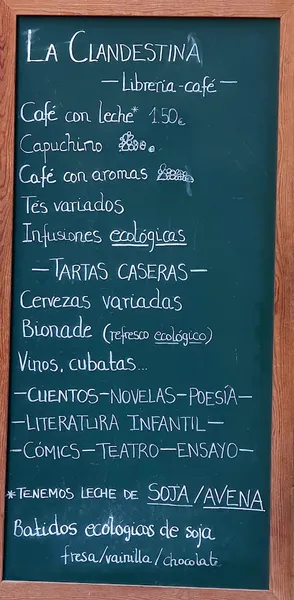 LA CLANDESTINA
— Librería-café —
Café con leche* 1.50€
Capuchino
Café con aromas
Tés variados
Infusiones ecológicas
— TARTAS CASERAS —
Cervezas variadas
Bionade (refresco ecológico)
Vinos, cubatas...
— CUENTOS — NOVELAS — POESÍA —
— LITERATURA INFANTIL —
— CÓMICS — TEATRO — ENSAYO —
*TENEMOS LECHE DE SOJA/AVENA
Batidos ecologicos de soja
fresa/vainilla/chocolate